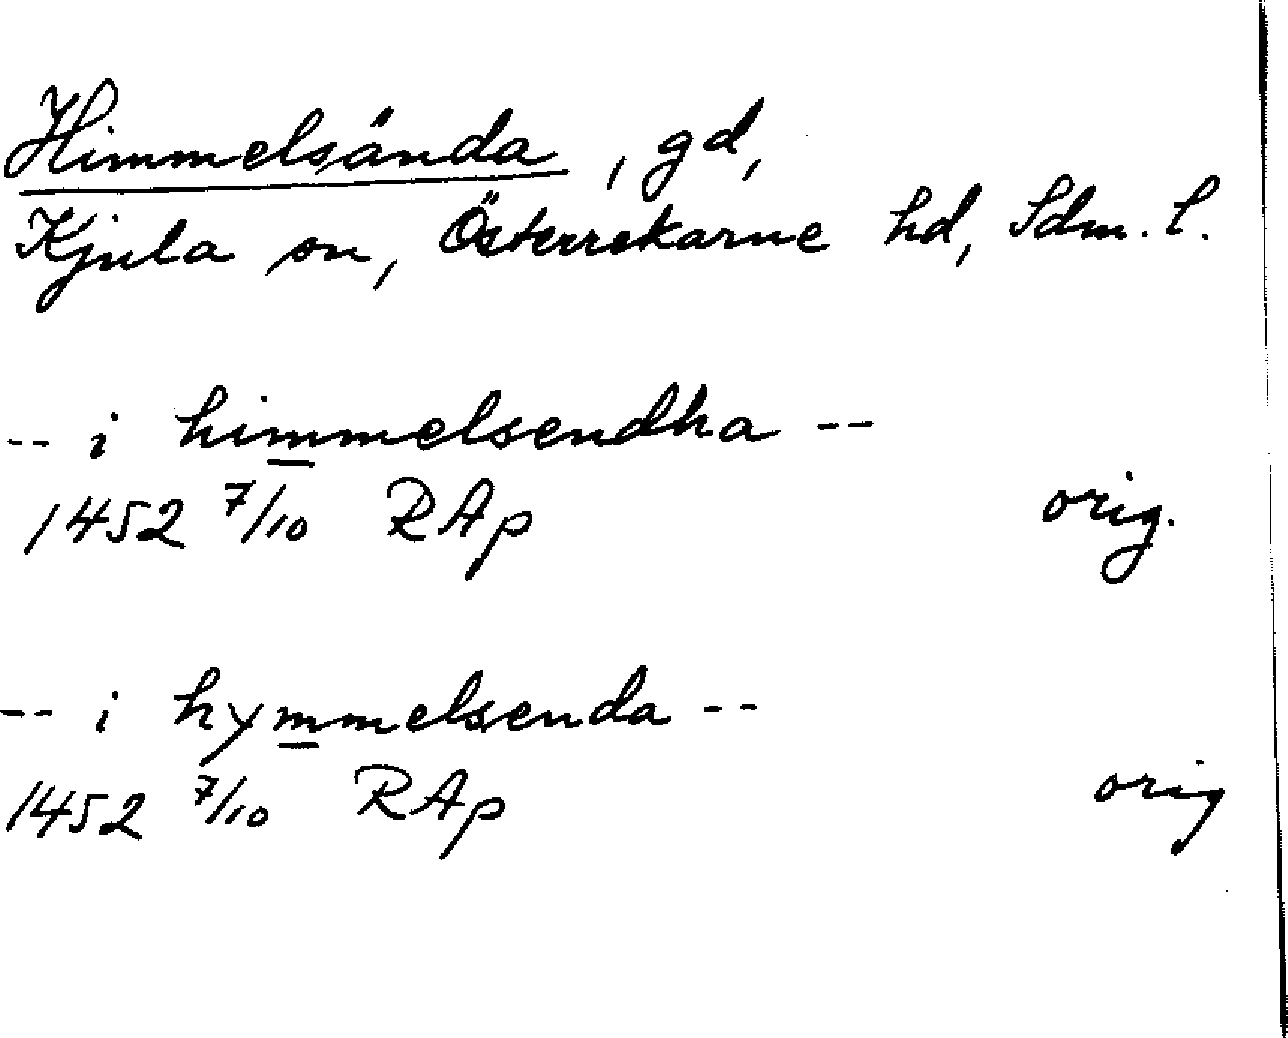 Himmelsända, gd,
Kjula sn, Österrekarne hd, Sdm. l.
-- i himmelsendha --
1452 7/10 RAp orig.
-- i hymmelsenda --
1452 7/10 RAp orig